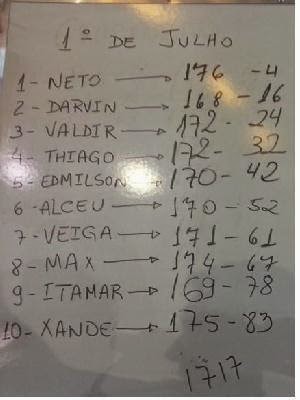 1º DE JULHO
1- NETO → 176 -4
2- DARVIN → 168 - 16
3- VALDIR → 172 - 24
4- THIAGO → 172 - 32
5- EDMILSON → 170 - 42
6- ALCEU → 170 - 52
7- VEIGA → 171 - 61
8- MAX → 174 - 67
9- ITAMAR → 169 - 78
10- XANDE → 175 - 83
1717